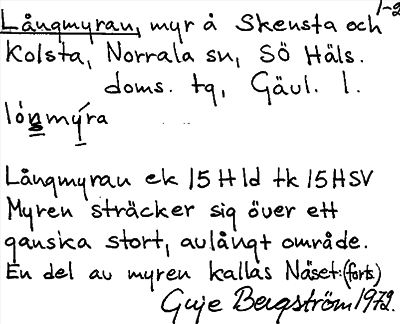 1-2
Långmyran, myr å Skensta och
Kolsta, Norrala sn, SÖ Häls.
doms. tg, Gävl. l.
lónsmýra
Långmyran ek 15 H 1d tk 15 HSV
Myren sträcker sig över ett
ganska stort, avlångt område.
En del av myren kallas Näset: (forts)
Guje Bergström 1972.